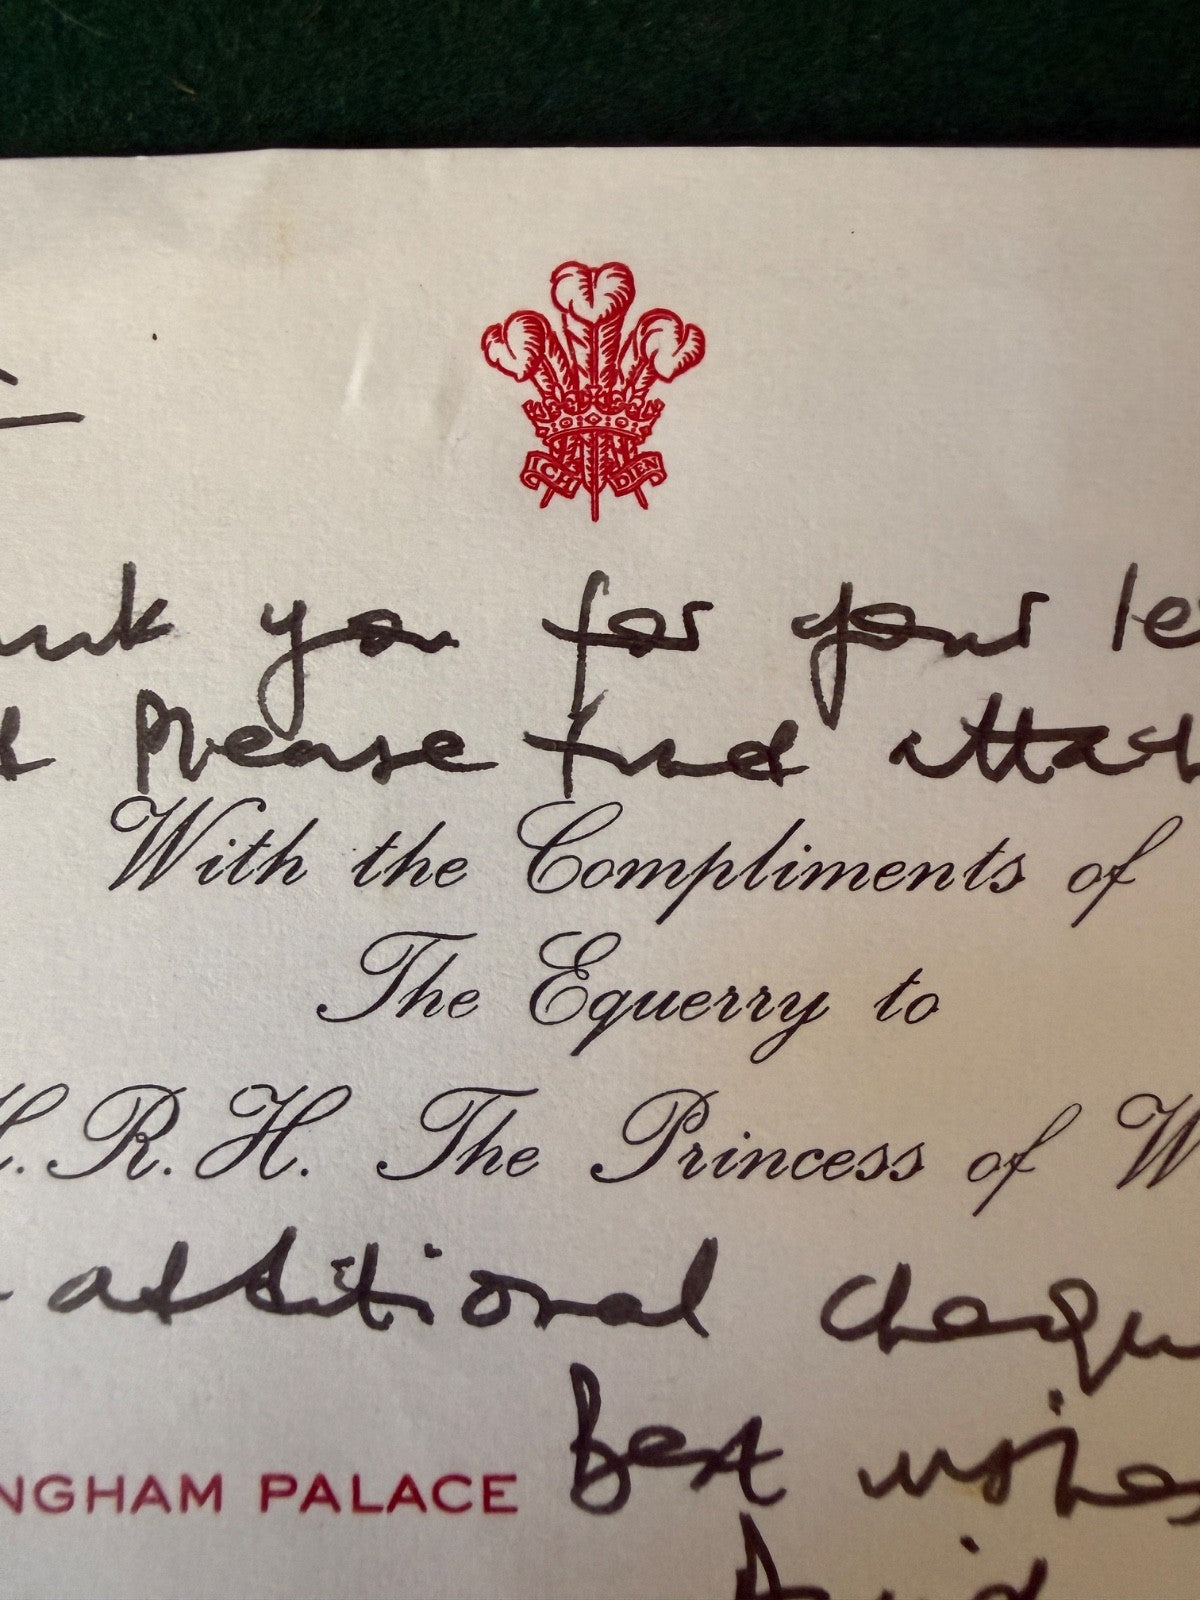 ICH DIEN
ank you for your le
d Please find attach
With the Compliments of
The Equerry to
H.R.H. The Princess of W
additional chequ
Best wishes
NGHAM PALACE
David